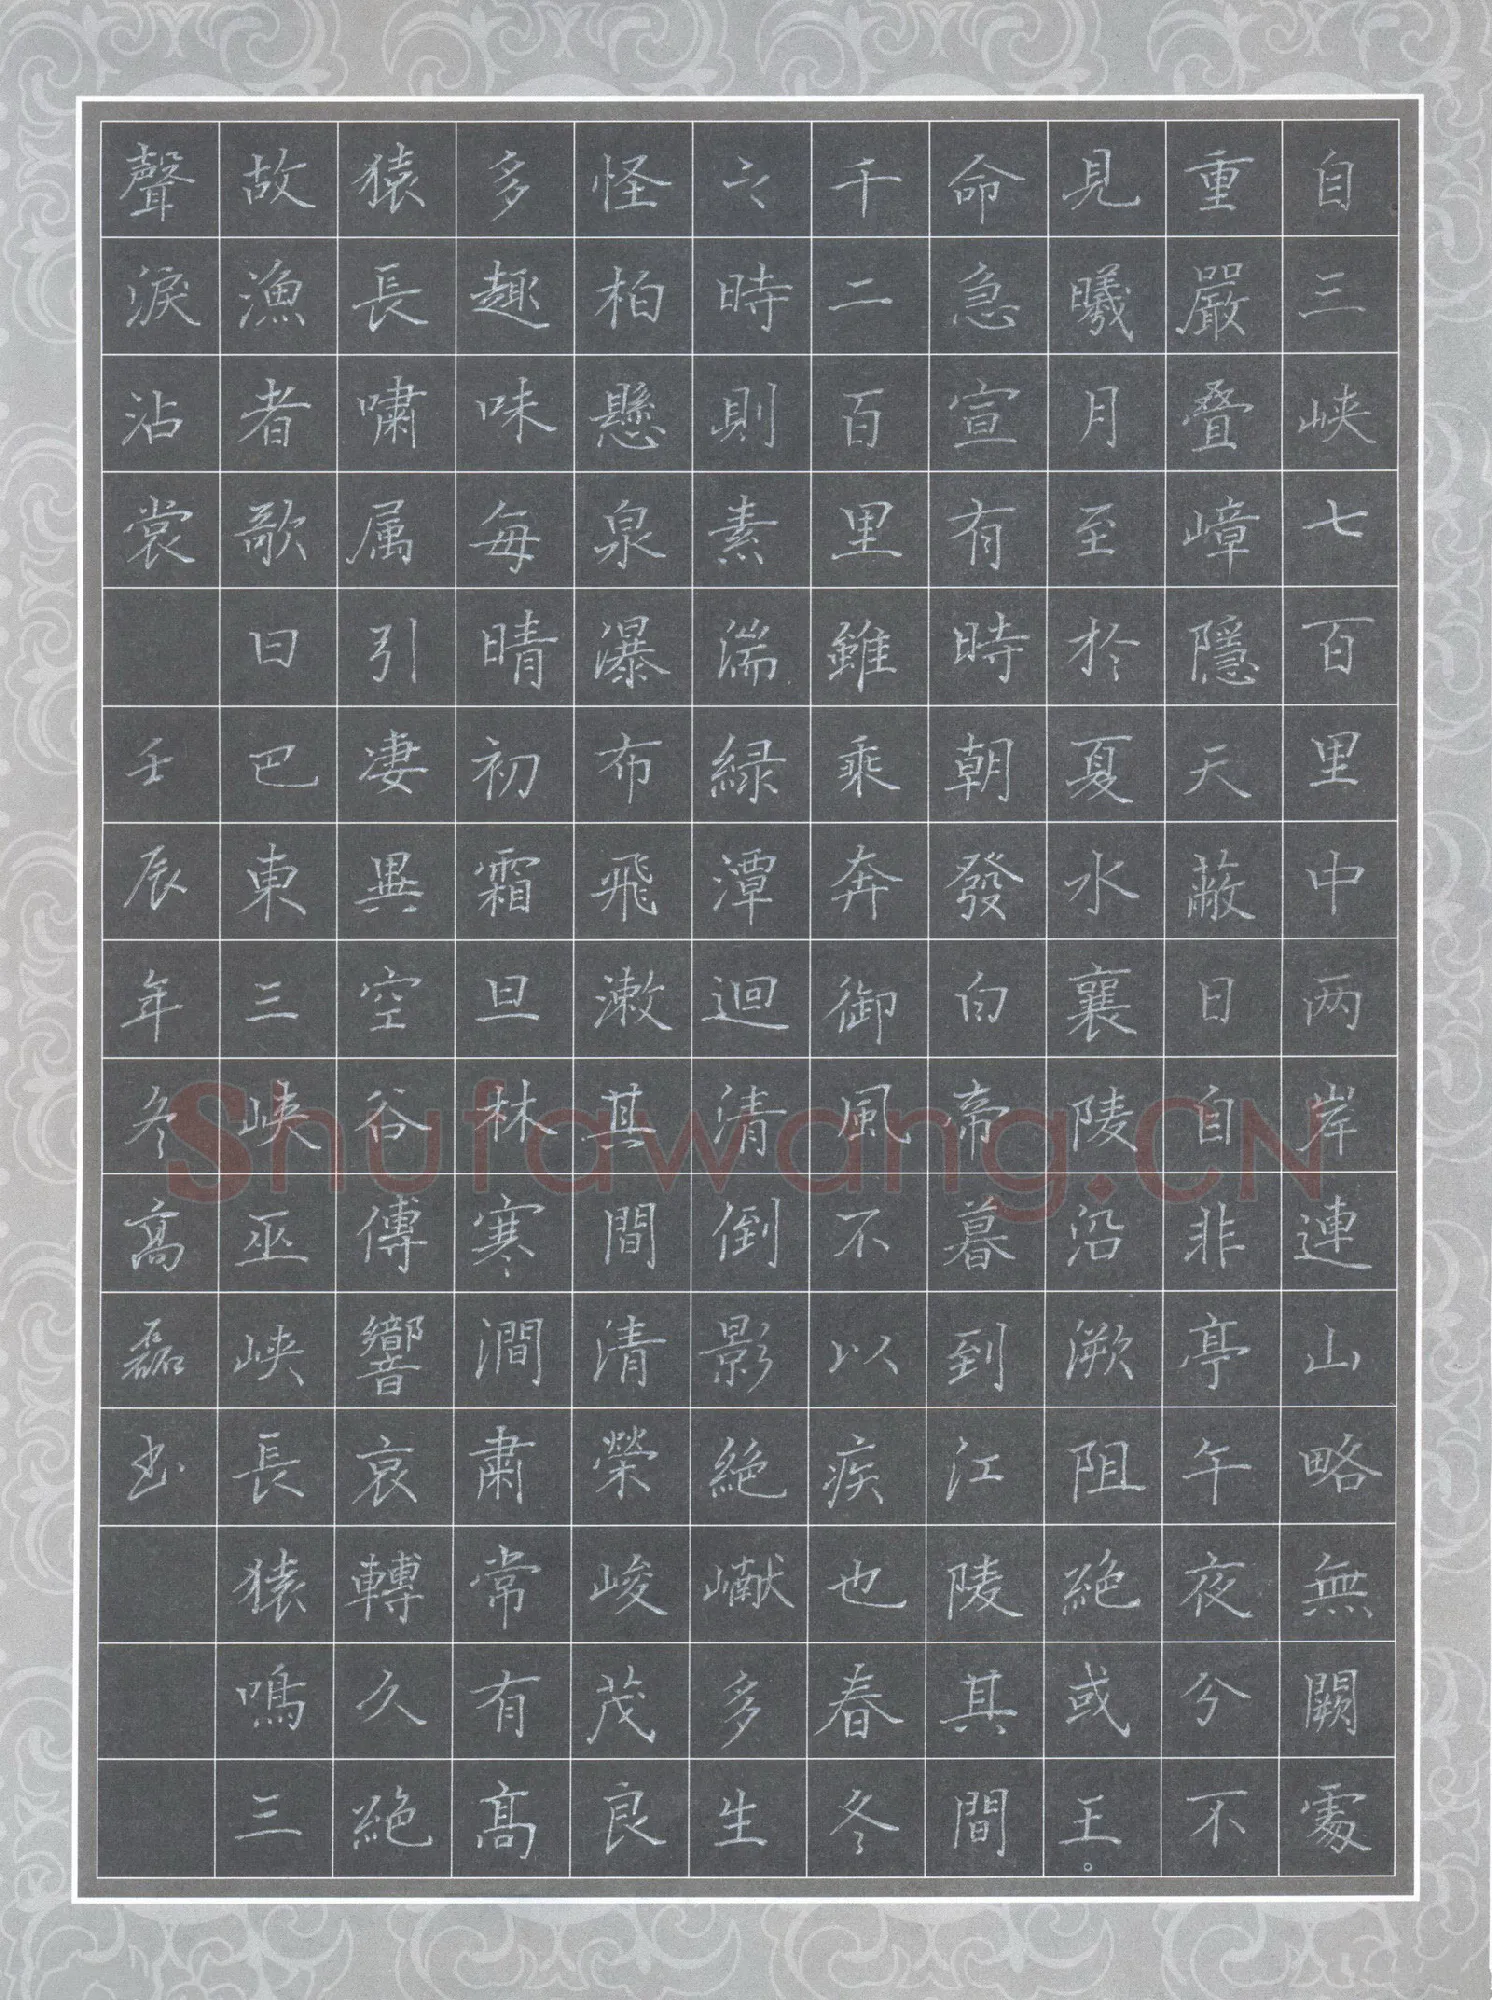 自三峡七百里中两岸連山略無闕處
重嚴叠嶂隱天蔽日自非亭午夜分不
見曦月至於夏水襄陵沿溯阻絕或王
命急宣有時朝發白帝暮到江陵其間
千二百里雖乘奔御風不以疾也春冬
之時則素湍緑潭迴清倒影絕巘多生
怪柏懸泉瀑布飛漱其間清榮峻茂良
多趣味每晴初霜旦林寒澗肅常有高
猿長嘯属引凄異空谷傳響哀轉久絕
故漁者歌曰巴東三峡巫峡長猿鳴三
聲淚沾裳 壬辰年冬高磊书
Shufawang.CN